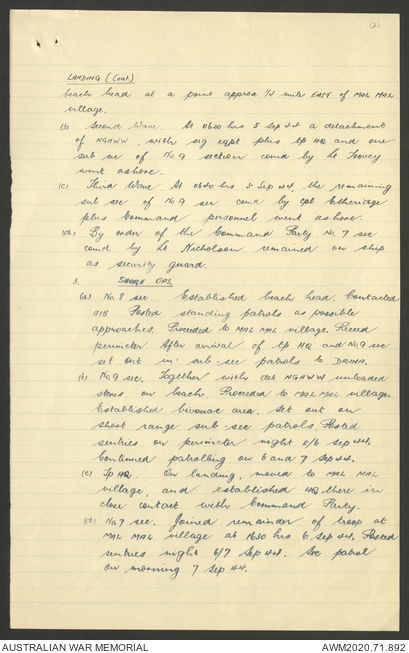 (2)
LANDING (Cont.)
beach head at a point approx 1/4 mile EAST of MAL MAL
village.
(b) Second Wave. At 0630 hrs 5 Sep 44 a detachment
of NGAWW, with sig eqpt plus tp HQ and one
sub sec of No. 9 section comd by Lt Tovey
went ashore.
(c) Third Wave. At 0640 hrs 5 Sep 44, the remaining
sub sec of No 9 sec comd by cpl Etheridge
plus Command personnel went ashore.
(d) By order of the Command Party No. 7 sec
comd by Lt Nicholson remained on ship
as security guard.
3. SHORE OPS.
(a) No. 8 sec Established beach head. Contacted
AIB Posted standing patrols as possible
approaches. Proceeded to MAL MAL village. Recced
perimeter After arrival of tp HQ and No 9 sec
set out in sub-sec patrols to DRINA.
(b) No. 9 sec. Together with det NGAWW unloaded
stores on beach. Proceeded to MAL MAL village.
Established bivouac area. Set out on
short range sub-sec patrols Posted
sentries on perimeter night 5/6 Sep 44.
Continued patrolling on 6 and 7 Sep 44.
(c) Tp HQ. On landing, moved to MAL MAL
village, and established HQ there in
close contact with Command Party.
(d) No 7 sec. Joined remainder of troop at
MAL MAL village at 1630 hrs 6 Sep 44. Posted
sentries night 6/7 Sep 44. Sec patrol
on morning 7 Sep 44.
AUSTRALIAN WAR MEMORIAL
AWM2020.71.892